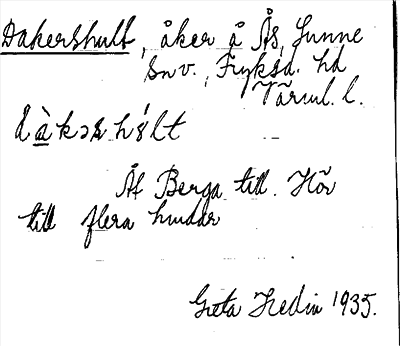 Dakershult, åker å Ås, Sunne
snv., Fryksd. hd
Värml. l.
dàkərshúlt
Af Berga till. Hör
till flera hudar
Greta Hedin 1935.